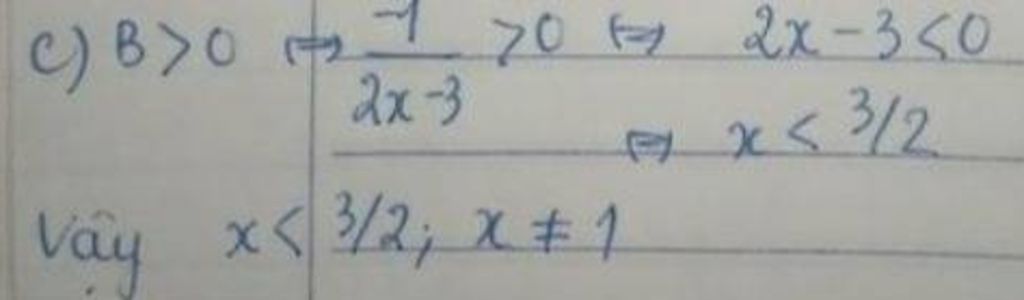 c) B > 0 ⇔ -1/(2x-3) > 0 ⇔ 2x - 3 < 0
⇔ x < 3/2
Vậy x < 3/2; x ≠ 1